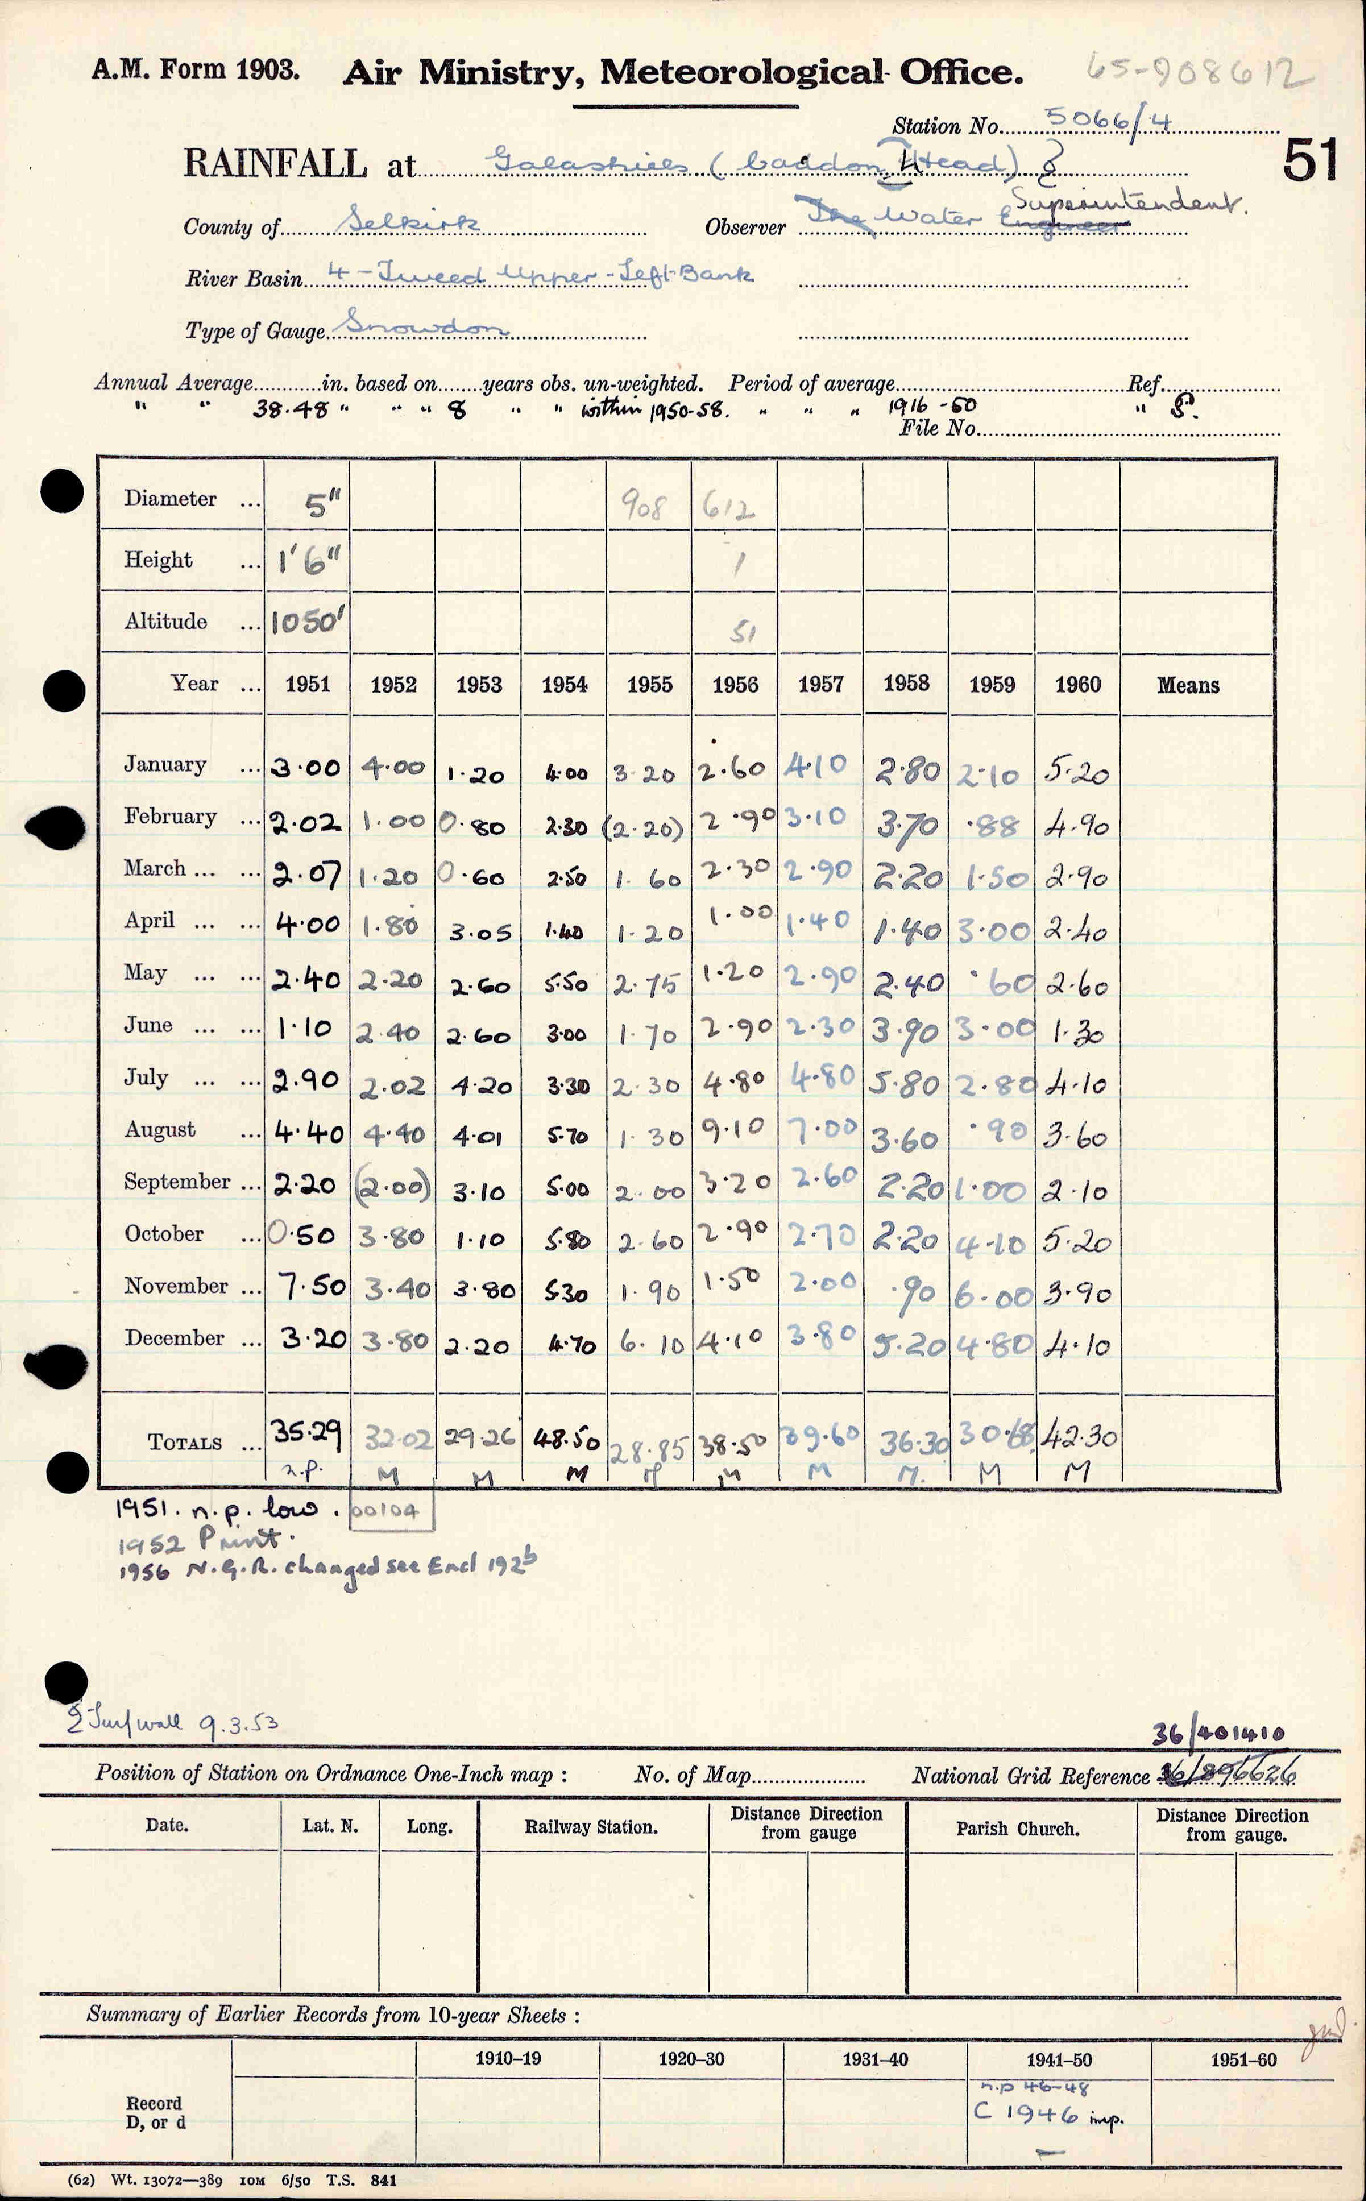 A.M. Form 1903. Air Ministry, Meteorological Office. 65-908612
Station No. 5066/4
RAINFALL at Galashiels (Caddon Head) 51
County of Selkirk Observer The Water Engineer Superintendent.
River Basin 4 - Tweed Upper - Left Bank
Type of Gauge Snowdon
Annual Average in. based on years obs. un-weighted. Period of average Ref.
" " 38.48 " " " 8 " " within 1950-58. " " " 1916-50 " S.
File No.
Diameter ... 5" 908 612
Height ... 1'6" 1
Altitude ... 1050' 51
Year ... 1951 1952 1953 1954 1955 1956 1957 1958 1959 1960 Means
January ... 3.00 4.00 1.20 4.00 3.20 2.60 4.10 2.80 2.10 5.20
February ... 2.02 1.00 0.80 2.30 (2.20) 2.90 3.10 3.70 .88 4.90
March ... ... 2.07 1.20 0.60 2.50 1.60 2.30 2.90 2.20 1.50 2.90
April ... ... 4.00 1.80 3.05 1.40 1.20 1.00 1.40 1.40 3.00 2.40
May ... ... 2.40 2.20 2.60 5.50 2.75 1.20 2.90 2.40 .60 2.60
June ... ... 1.10 2.40 2.60 3.00 1.70 2.90 2.30 3.90 3.00 1.30
July ... ... 2.90 2.02 4.20 3.30 2.30 4.80 4.80 5.80 2.80 4.10
August ... 4.40 4.40 4.01 5.70 1.30 9.10 7.00 3.60 .90 3.60
September ... 2.20 (2.00) 3.10 5.00 2.00 3.20 2.60 2.20 1.00 2.10
October ... 0.50 3.80 1.10 5.80 2.60 2.90 2.70 2.20 4.10 5.20
November ... 7.50 3.40 3.80 5.30 1.90 1.50 2.00 .90 6.00 3.90
December ... 3.20 3.80 2.20 4.70 6.10 4.10 3.80 5.20 4.80 4.10
TOTALS ... 35.29 32.02 29.26 48.50 28.85 38.50 39.60 36.30 30.68 42.30
n.p. M M M M M M M. M M
1951. n.p. low. 00104
1952 Print.
1956 N.G.R. changed see Encl 192b
Turf wall 9.3.53
36/401410
Position of Station on Ordnance One-Inch map : No. of Map National Grid Reference 36/896626
Date. Lat. N. Long. Railway Station. Distance Direction from gauge Parish Church. Distance Direction from gauge.
Summary of Earlier Records from 10-year Sheets :
1910–19 1920–30 1931–40 1941–50 1951–60
n.p 46-48
Record
D, or d C 1946 imp.
(62) Wt. 13072—389 10M 6/50 T.S. 841